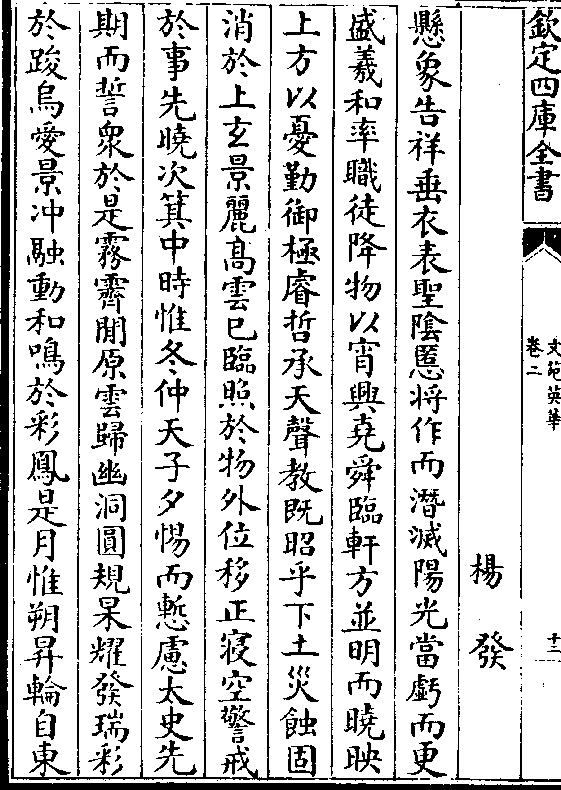 欽定四庫全書
文苑英華
卷二
十二
楊發
懸象告祥垂衣表聖陰慝將作而潛滅陽光當虧而更
盛羲和率職徒降物以宵興堯舜臨軒方並明而曉映
上方以憂勤御極睿哲承天聲教既昭乎下土災蝕固
消於上玄景麗高雲已臨照於物外位移正寢空警戒
於事先曉次箕中時惟冬仲天子夕惕而慙慮太史先
期而誓衆於是霧霽開原雲歸幽洞圓規杲耀發瑞彩
於踆烏愛景沖融動和鳴於彩鳳是月惟朔昇輪自東